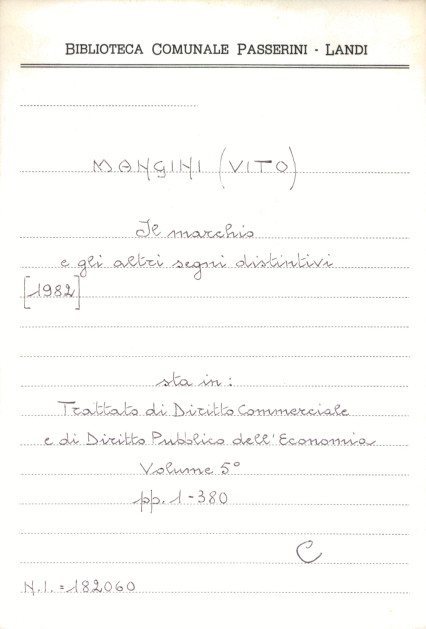 BIBLIOTECA COMUNALE PASSERINI - LANDI
MANGINI (VITO)
Il marchio
e gli altri segni distintivi
[1982]
sta in:
Trattato di Diritto Commerciale
e di Diritto Pubblico dell'Economia
Volume 5°
pp. 1-380
C
N.I. = 182060